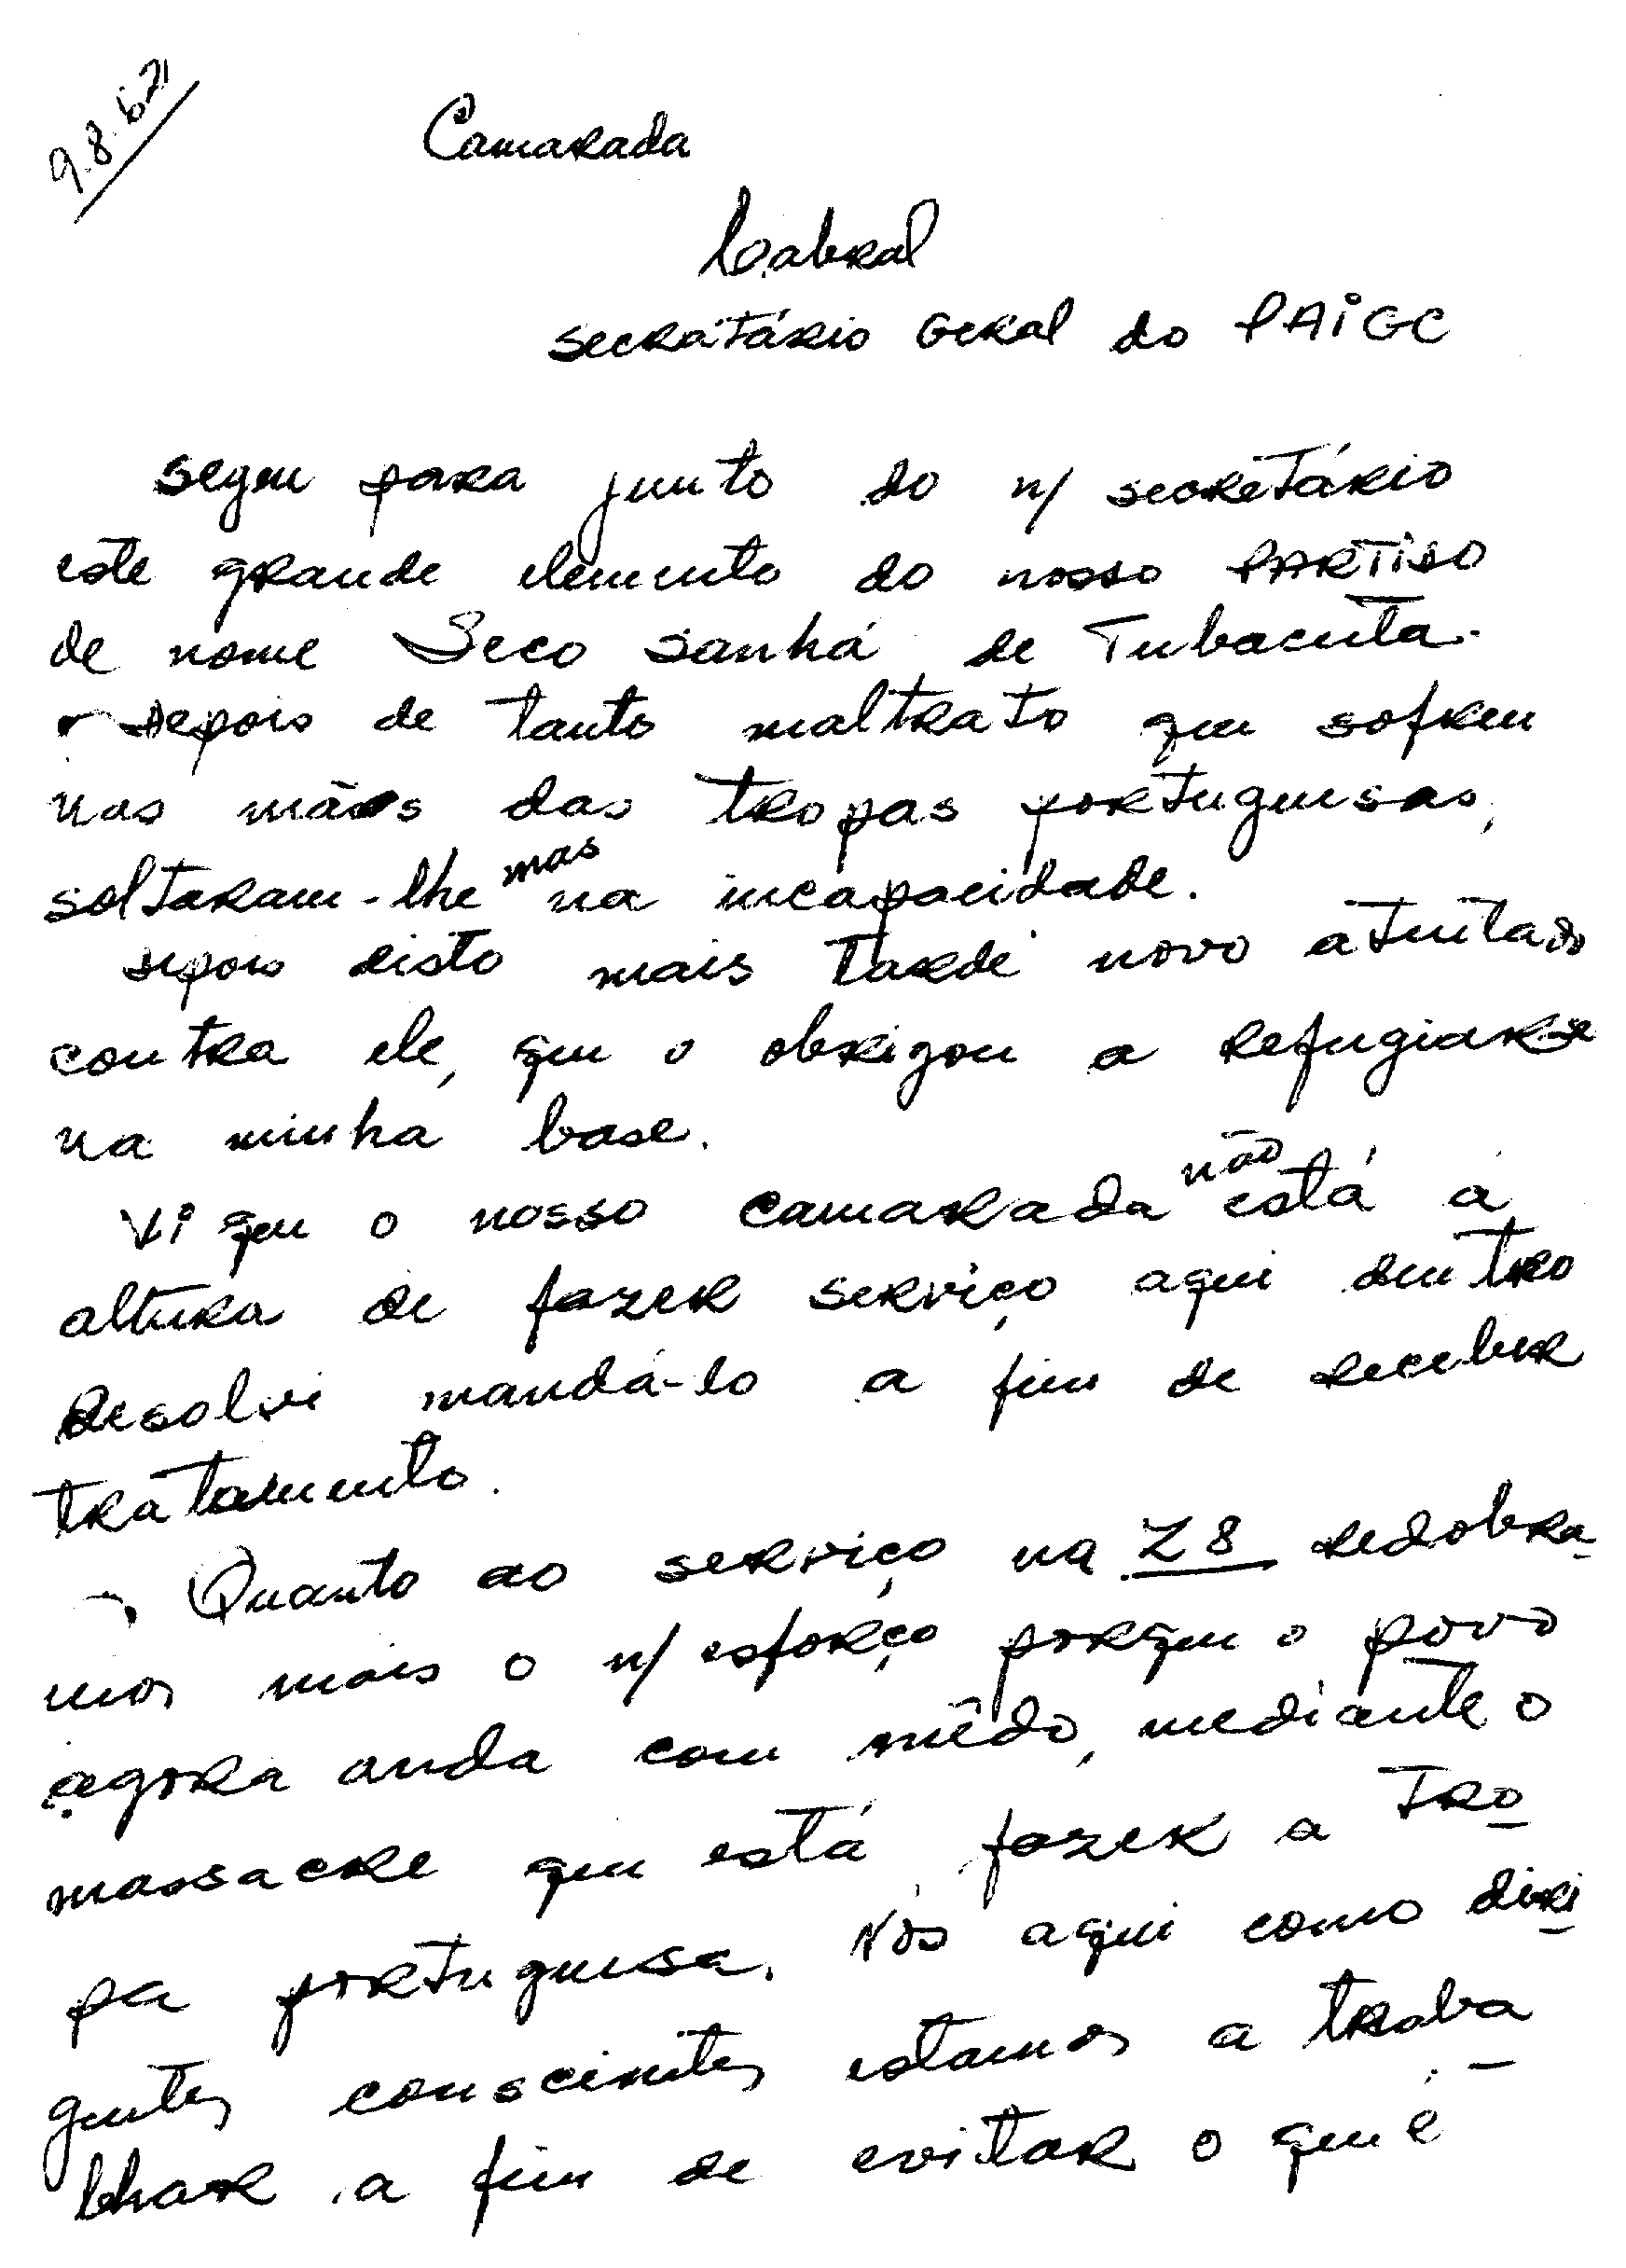 9.8.62
Camarada
Cabral
Secretário Geral do PAIGC
Segue para junto do n/ secretário
este grande elemento do nosso PARTIDO
de nome Seco Sanhá de Tubacuta.
Depois de tanto maltrato que sofreu
nas mãos das tropas portuguesas,
soltaram-lhe mas na incapacidade.
Depois disto mais tarde novo atentado
contra ele, que o obrigou a refugiar-se
na minha base.
Vi que o nosso camarada não está à
altura de fazer serviço aqui dentro
Resolvi mandá-lo a fim de receber
tratamento.
Quanto ao serviço na Z8 redobra-
mos mais o n/ esforço porque o povo
agora anda com mêdo, mediante o
massacre que está fazer a tro-
pa portuguesa. Nós aqui como diri-
gentes conscientes estamos a traba-
lhar a fim de evitar o que é